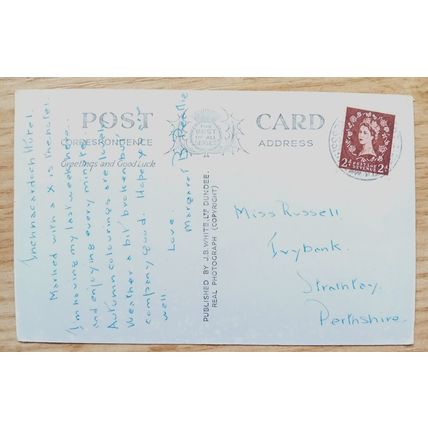 POST CARD
CORRESPONDENCE
ADDRESS
Greetings and Good Luck
BEST OF ALL
2½D POSTAGE REVENUE 2½D
PUBLISHED BY J.B. WHITE, LTD. DUNDEE.
REAL PHOTOGRAPH (COPYRIGHT)
Hotel.
Marked with a X is the hotel.
I'm having my last weekend
and enjoying every minute.
Autumn colourings are lovely
Weather a bit broken but
company good. Hope you're
well.
Love.
Margaret B.
Miss Russell,
Ivybank.
Strathtay.
Perthshire.